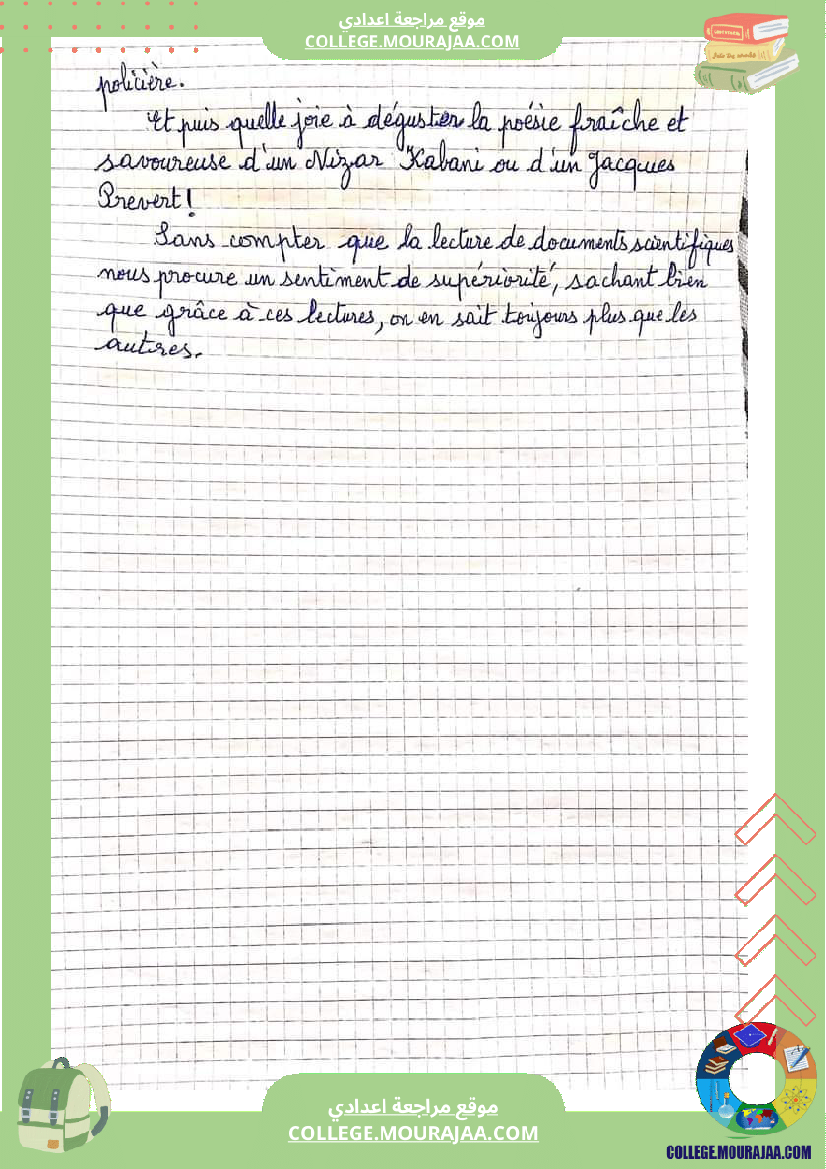 موقع مراجعة اعدادي
COLLEGE.MOURAJAA.COM
policière.
Et puis quelle joie à déguster la poésie fraîche et
savoureuse d'un Nizar Kabani ou d'un Jacques
Prevert!
Sans compter que la lecture de documents scientifiques
nous procure un sentiment de supériorité, sachant bien
que grâce à ces lectures, on en sait toujours plus que les
autres.
موقع مراجعة اعدادي
COLLEGE.MOURAJAA.COM
COLLEGE.MOURAJAA.COM